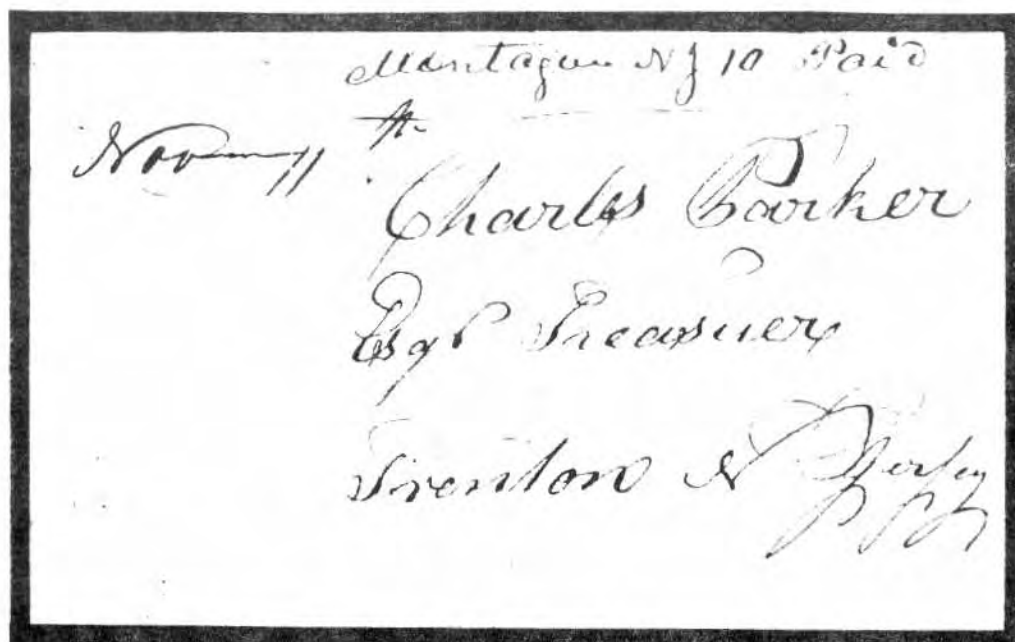 Montague NJ 10 Paid
Novem 11th
Charles Parker
Esqr Treasurer
Trenton N Jersey